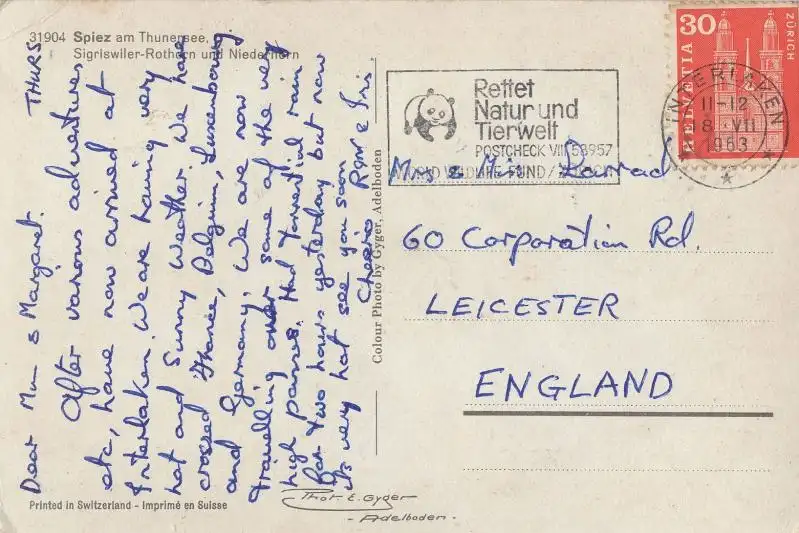 31904 Spiez am Thunersee,
Sigriswiler-Rothorn und Niederhorn
THURS
Dear Mum & Margaret.
After various adventures
etc, have now arrived at
Interlaken. We are having very
hot and Sunny Weather. We have
crossed France, Belgium, Luxembourg
and Germany. We are now
travelling over some of the very
high passes. Had torrential rain
for two hours yesterday but now
its very hot see you soon
Cheerio
Colour Photo by Gyger, Adelboden
Rettet
Natur und
Tierwelt
POSTCHECK VIII 58957
WORLD WILDLIFE FUND/
30
HELVETIA
ZÜRICH
INTERLAKEN
11-12
8. VII
1963
Mrs & Miss
60 Corporation Rd.
LEICESTER
ENGLAND
Printed in Switzerland - Imprimé en Suisse
Thor E. Gyger
- Adelboden -